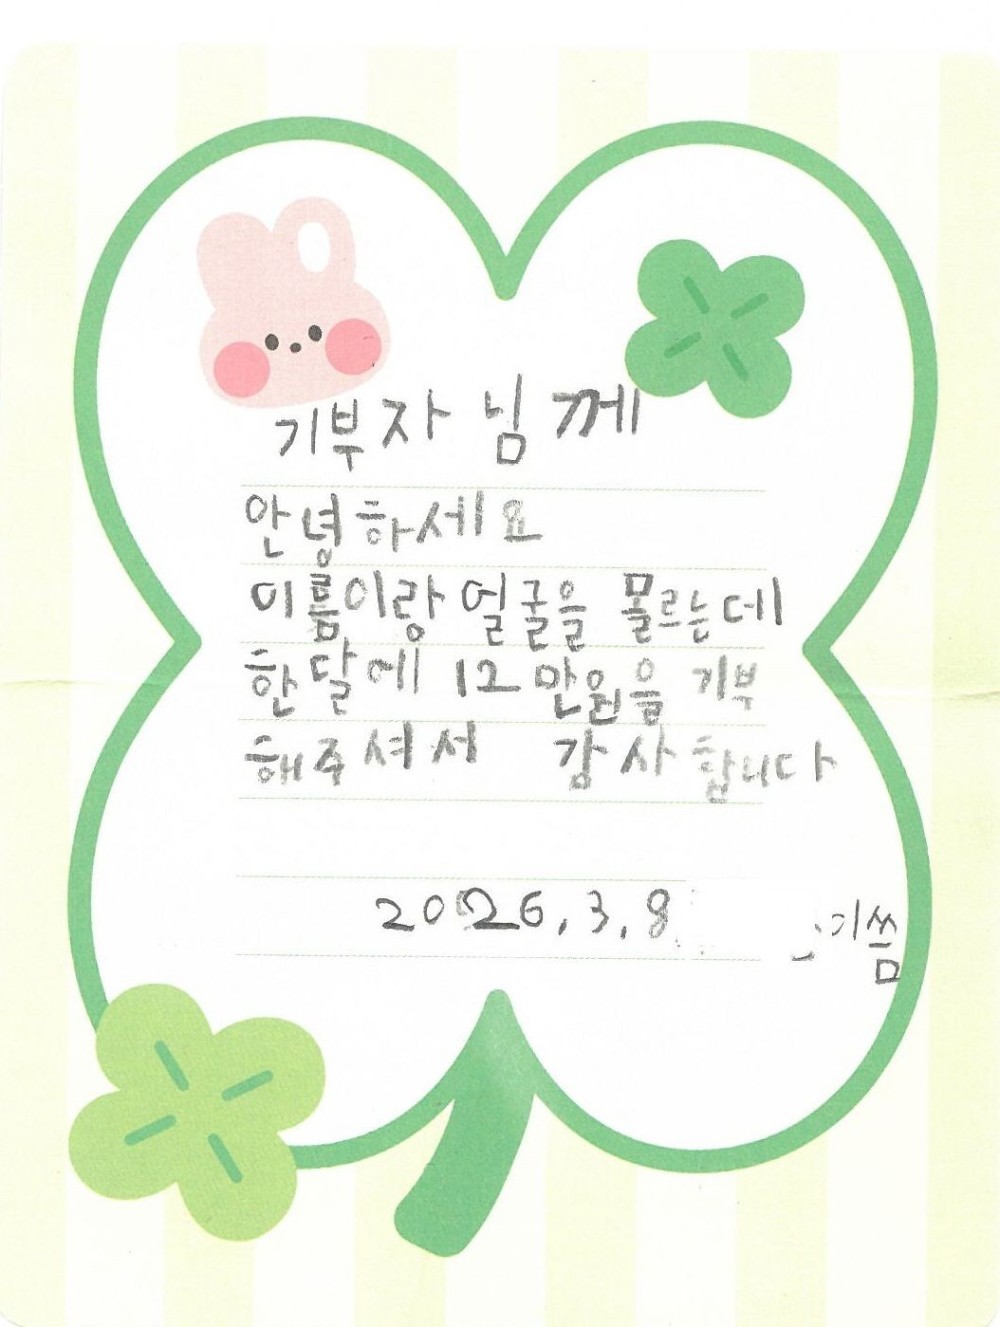 기부자 님 께
안녕하세요
이름이랑 얼굴을 몰르는데
한달에 12만원을 기부
해주셔서 감사합니다
2026.3.8 이씀